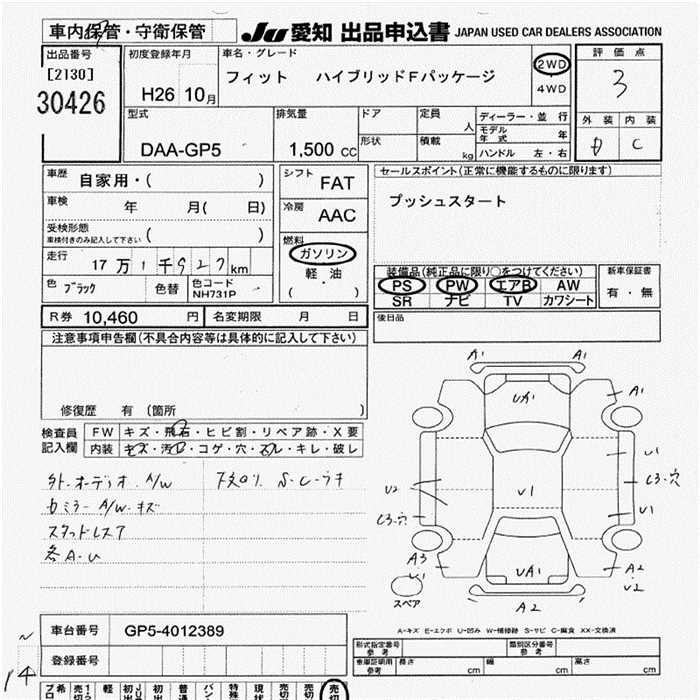 車内保管・守衛保管
JU 愛知 出品申込書 JAPAN USED CAR DEALERS ASSOCIATION
出品番号
[2130]
30426
初度登録年月
H26 10月
車名・グレード
フィット ハイブリッドFパッケージ
2WD
4WD
評価点
3
外装 内装
D C
型式
DAA-GP5
排気量
1,500 cc
ドア
形状
定員 人
積載 kg
ディーラー・並行
モデル年式 年
ハンドル 左・右
車歴
自家用・( )
車検
年 月( 日)
受検形態
車検付きのみ記入して下さい ( )
走行
17万1千927km
色 ブラック 色替 色コード NH731P
シフト FAT
冷房 AAC
燃料
ガソリン
軽・油
( )
セールスポイント(正常に機能するものに限ります)
プッシュスタート
装備品(純正品に限り○をつけてください)
PS PW エアB AW
SR ナビ TV カワシート
新車保証書
有・無
R券 10,460 円 名変期限 月 日
後日品
注意事項申告欄(不具合内容等は具体的に記入して下さい)
修復歴 有 (箇所 )
検査員記入欄
FW キズ・飛石・ヒビ割・リペア跡・X要
内装 キズ・汚レ・コゲ・穴・スレ・キレ・破レ
外.オーディオ.A/W
下廻り S-C-ウキ
ミラー A/W.キズ
スタッドレス7
各A-U
A1 A1
A1
U1
U2
U1
U1
A3
U1
UA1
A2
U2
A2
スペア
A-キズ E-エクボ U-凹み W-補修跡 S-サビ C-腐食 XX-交換済
車台番号 GP5-4012389
登録番号
形式指定番号 参考
類別区分番号 参考
車庫証明用 参考 長さ cm 幅 cm 高さ cm
14